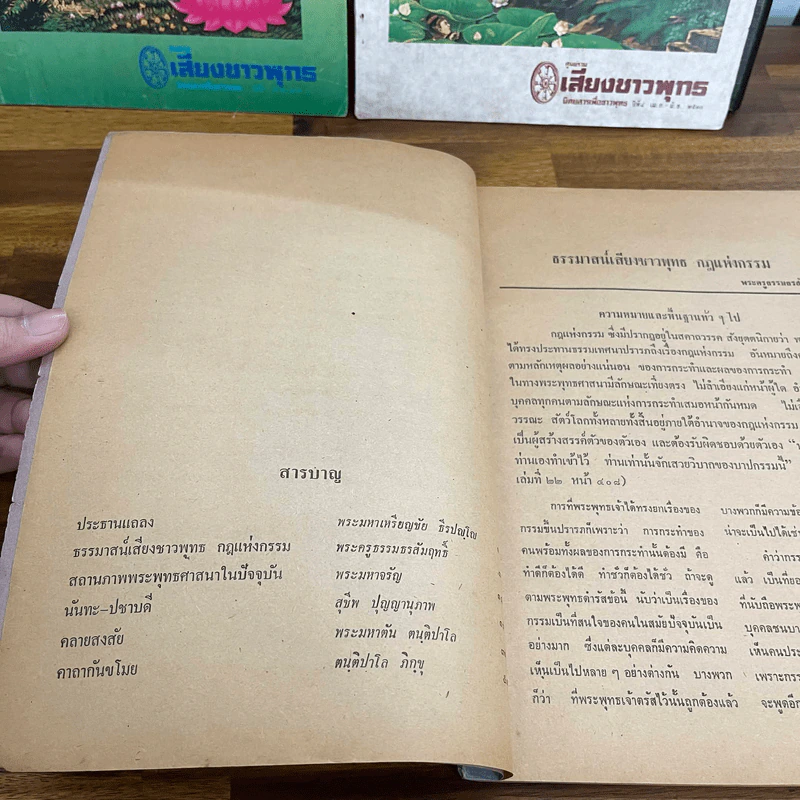 เสียงชาวพุทธ
เสียงชาวพุทธ
นิตยสารเพื่อชาวพุทธ
สารบาญ
ประธานแถลง พระมหาเหรียญชัย ธีรปญฺโญ
ธรรมาสน์เสียงชาวพุทธ กฎแห่งกรรม พระครูธรรมธรสัมฤทธิ์
สถานภาพพระพุทธศาสนาในปัจจุบัน พระมหาจรัญ
นันทะ-ปชาบดี สุชีพ ปุญญานุภาพ
คลายสงสัย พระมหาตัน ตนฺติปาโล
คาถากันขโมย ตนฺติปาโล ภิกฺขุ
ธรรมาสน์เสียงชาวพุทธ กฎแห่งกรรม
พระครูธรรมธรสัม
ความหมายและพื้นฐานทั่ว ๆ ไป
กฎแห่งกรรม ซึ่งมีปรากฏอยู่ในสคาถวรรค สังยุตตนิกายว่า
ได้ทรงประทานธรรมเทศนาปรารภถึงเรื่องกฎแห่งกรรม อันหมายถึง
ตามหลักเหตุผลอย่างแน่นอน ของการกระทำและผลของการกระทำ
ในทางพระพุทธศาสนามีลักษณะเที่ยงตรง ไม่ลำเอียงแก่หน้าผู้ใด
บุคคลทุกคนตามลักษณะแห่งการกระทำเสมอหน้ากันหมด
วรรณะ สัตว์โลกทั้งหลายทั้งสิ้นอยู่ภายใต้อำนาจของกฎแห่งกรรม
เป็นผู้สร้างสรรค์ตัวของตัวเอง และต้องรับผิดชอบด้วยตัวเอง
ท่านเองทำเข้าไว้ ท่านเท่านั้นจักเสวยวิบากของบาปกรรมนี้”
เล่มที่ ๒๒ หน้า ๔๐๘)
การที่พระพุทธเจ้าได้ทรงยกเรื่องของ บางพวกก็มีความ
กรรมขึ้นปรารภก็เพราะว่า การกระทำของ น่าจะเป็นไปได้
คนพร้อมทั้งผลของการกระทำนั้นต้องมี คือ คำว่ากรรม
ทำดีก็ต้องได้ดี ทำชั่วก็ต้องได้ชั่ว ถ้าจะดู แล้ว เป็นที่
ตามพระพุทธดำรัสข้อนี้ นับว่าเป็นเรื่องของ ที่นับถือพระ
กรรมเป็นที่สนใจของคนในสมัยปัจจุบันเป็น บุคคลชน
อย่างมาก ซึ่งแต่ละบุคคลก็มีความคิดความ เห็นคน
เห็นเป็นไปหลาย ๆ อย่างต่างกัน บางพวก เพราะ
ก็ว่า ที่พระพุทธเจ้าตรัสไว้นั้นถูกต้องแล้ว จะพูด